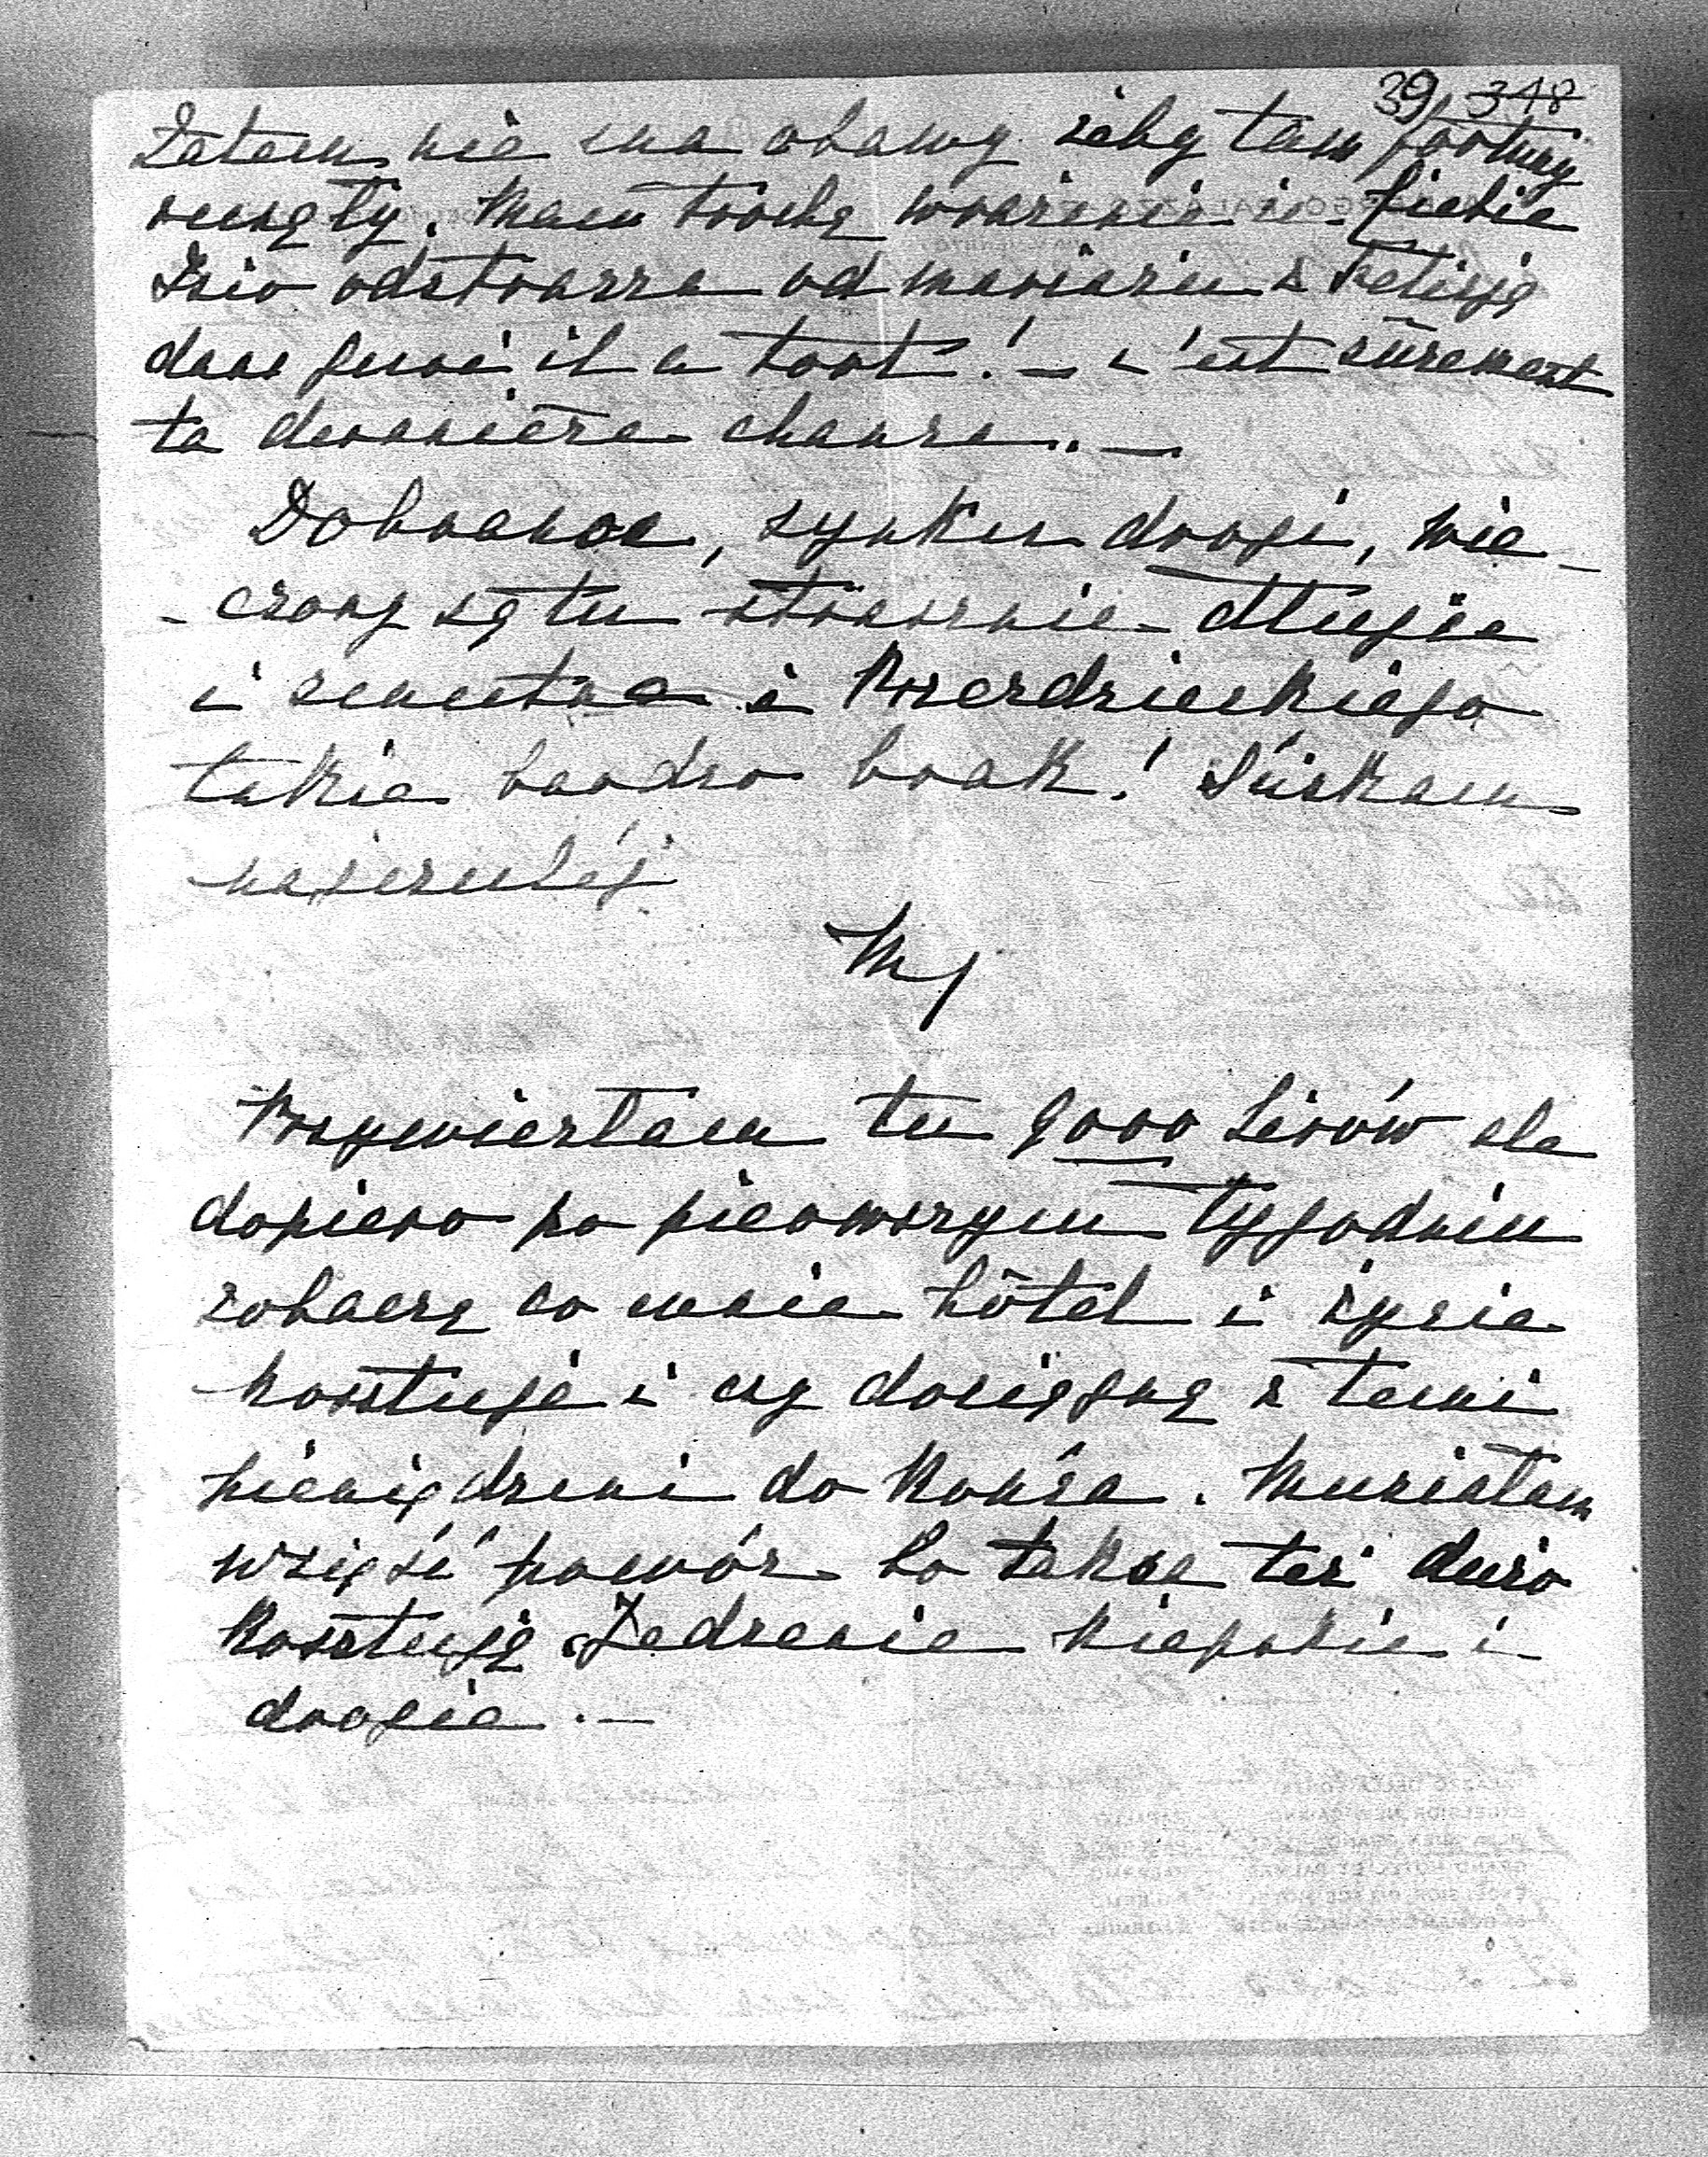 39 348
Zatem nie ma obawy żeby tam fortuny
runęły. Mam trochę wrażenie że Ciebie
Izio odstrasza od mariażu z Letizią
dans quoi il a tort! — c'est sûrement
ta dernière chance. —
Dobranoc, synku drogi, wie-
-czory są tu strasznie długie
i smutne i Kozerdzieckiego
takie bardzo brak! Ściskam
najczulej
M
Przywiozłam tu 9000 Lirów ale
dopiero po pierwszym tygodniu
zobaczę co mnie hôtel i życie
kosztuje i czy dociągnę z temi
pieniędzmi do końca. Musiałam
wziąść powóz bo taksa też dużo
kosztuje. Jedzenie kiepskie i
drogie. —